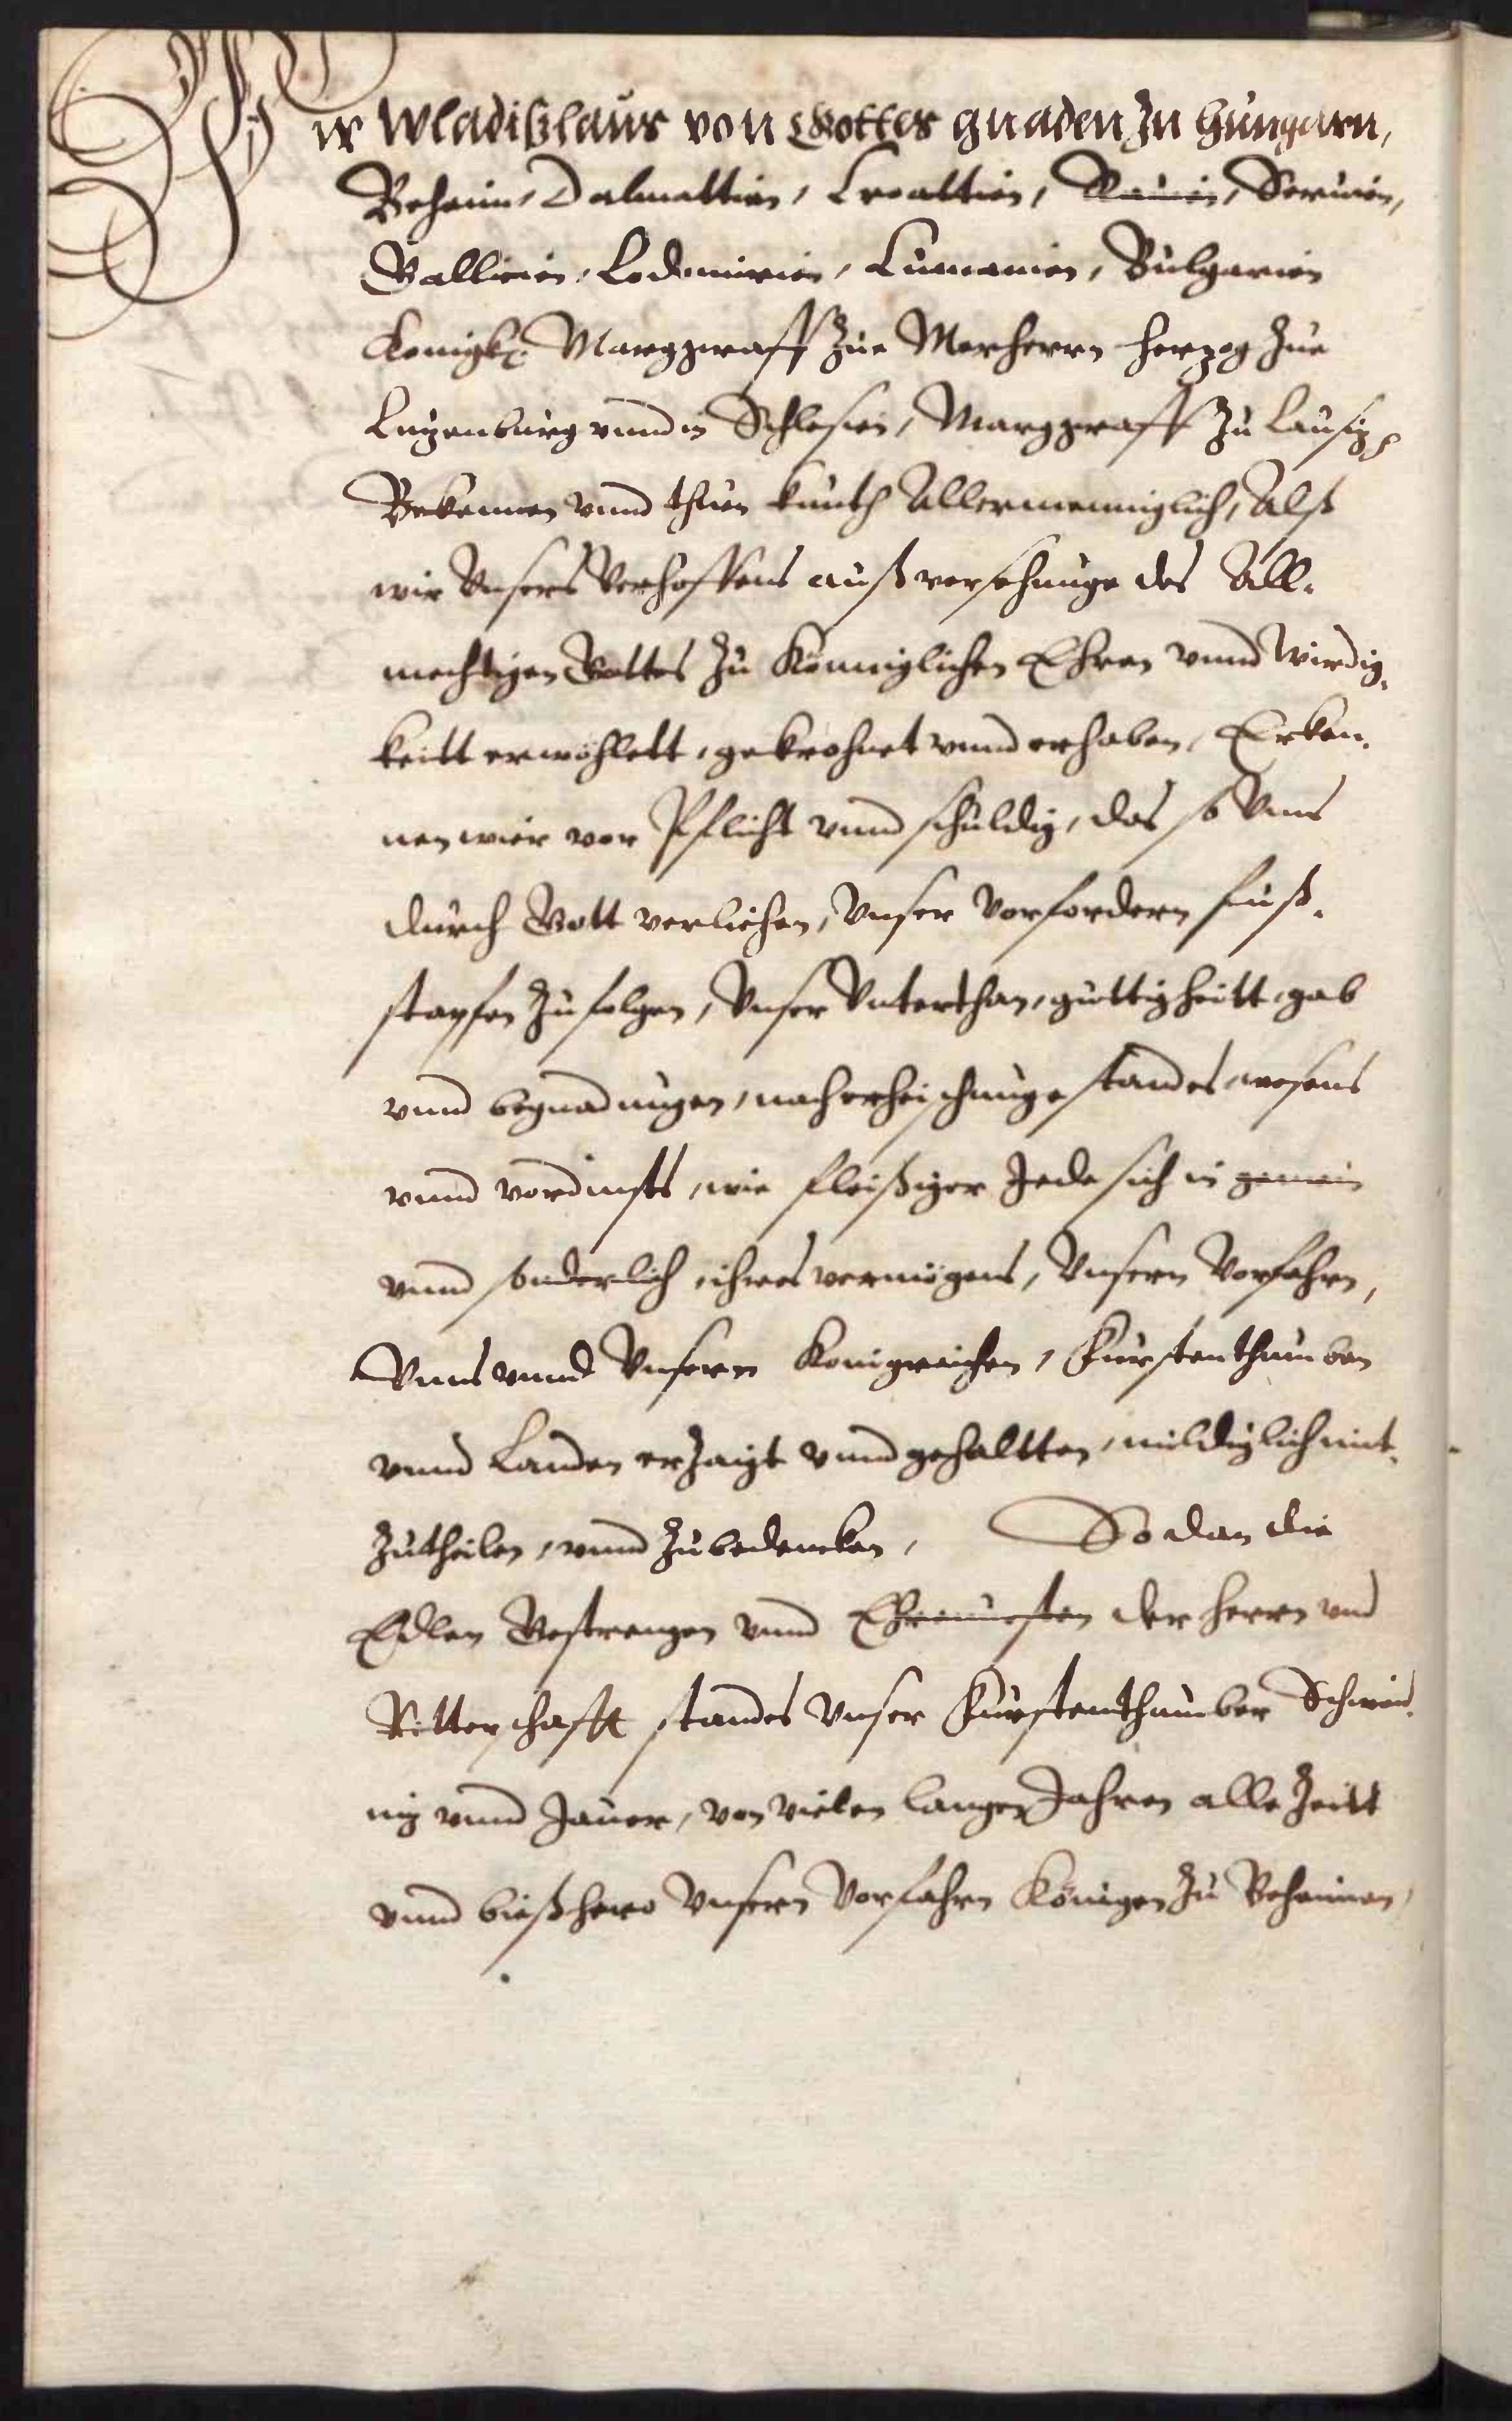 Wir Wladißlaus von Gottes gnaden zu Hungarn,
Beheim, Dalmattien, Croattien, Ramien, Seruien,
Gallicien, Lodomirien, Cumanien, Bulgarien
Konigk. Marggraff zue Merherrn Herzog zue
Luzenburg vnnd in Schlesien, Marggraff zu Lausiz
Bekennen vnnd thuen kunth Allermenniglich, Alß
wir Vnsers Verhoffens auß versehunge des All-
mechtigen Gottes zu Könniglichen Ehren vnnd wirdig-
keitt erwöhlett, gekrohnet vnnd erhaben, Erken-
nen wier vor Pflicht vnnd schuldig, das so Vnns
durch Gott verliehen, Vnser Vorfordern fuß-
stapfen zu folgen, Vnser Vnterthan, guttigheitt, gab
vnnd begnadungen, nach erheischunge standes wesens
vnnd vordinsts, wie fleißiger Jede sich in gemein
vnnd sonderlich ihres vermögens, Vnsern Vorfahrn,
Vnns vnnd Vnsern Konigreichen, Furstenthumben
vnnd Landen erzaigt vnnd gehaltten, mildiglich mit-
zutheilen, vnnd zubedencken, So dan die
Edlen Gestrengen vnnd Ehrnuesten der Herrn vnd
Ritterschafft standes Vnser Furstenthumber Schweid-
niz vnnd Jauer, von vielen langen Jahren alle Zeitt
vnnd bießhero Vnsern Vorfahrn Königen zu Beheimen,